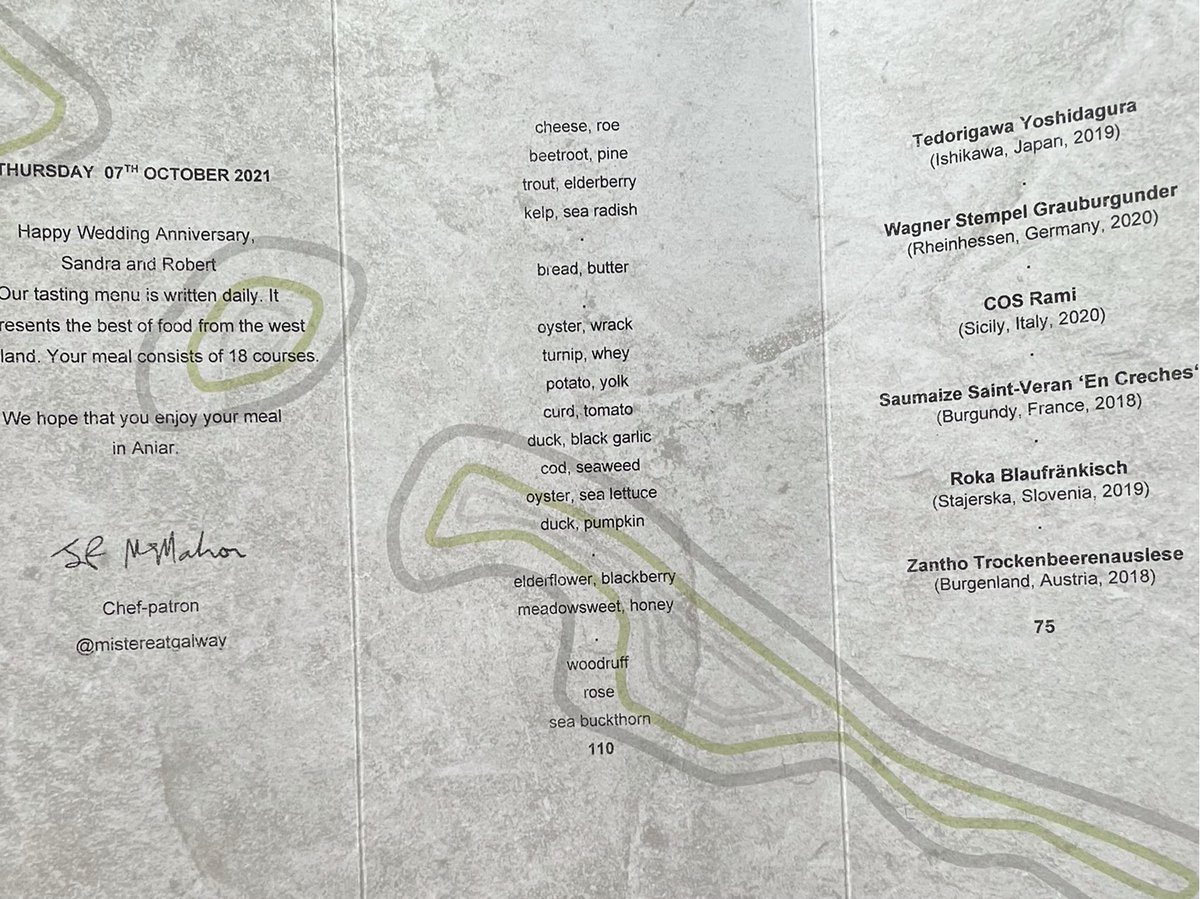 THURSDAY 07TH OCTOBER 2021
Happy Wedding Anniversary,
Sandra and Robert
Our tasting menu is written daily. It
resents the best of food from the west
land. Your meal consists of 18 courses.
We hope that you enjoy your meal
in Aniar.
JP McMahon
Chef-patron
@mistereatgalway
cheese, roe
beetroot, pine
trout, elderberry
kelp, sea radish
.
bread, butter
.
oyster, wrack
turnip, whey
potato, yolk
curd, tomato
duck, black garlic
cod, seaweed
oyster, sea lettuce
duck, pumpkin
.
elderflower, blackberry
meadowsweet, honey
.
woodruff
rose
sea buckthorn
110
Tedorigawa Yoshidagura
(Ishikawa, Japan, 2019)
.
Wagner Stempel Grauburgunder
(Rheinhessen, Germany, 2020)
.
COS Rami
(Sicily, Italy, 2020)
.
Saumaize Saint-Veran ‘En Creches‘
(Burgundy, France, 2018)
.
Roka Blaufränkisch
(Stajerska, Slovenia, 2019)
.
Zantho Trockenbeerenauslese
(Burgenland, Austria, 2018)
75